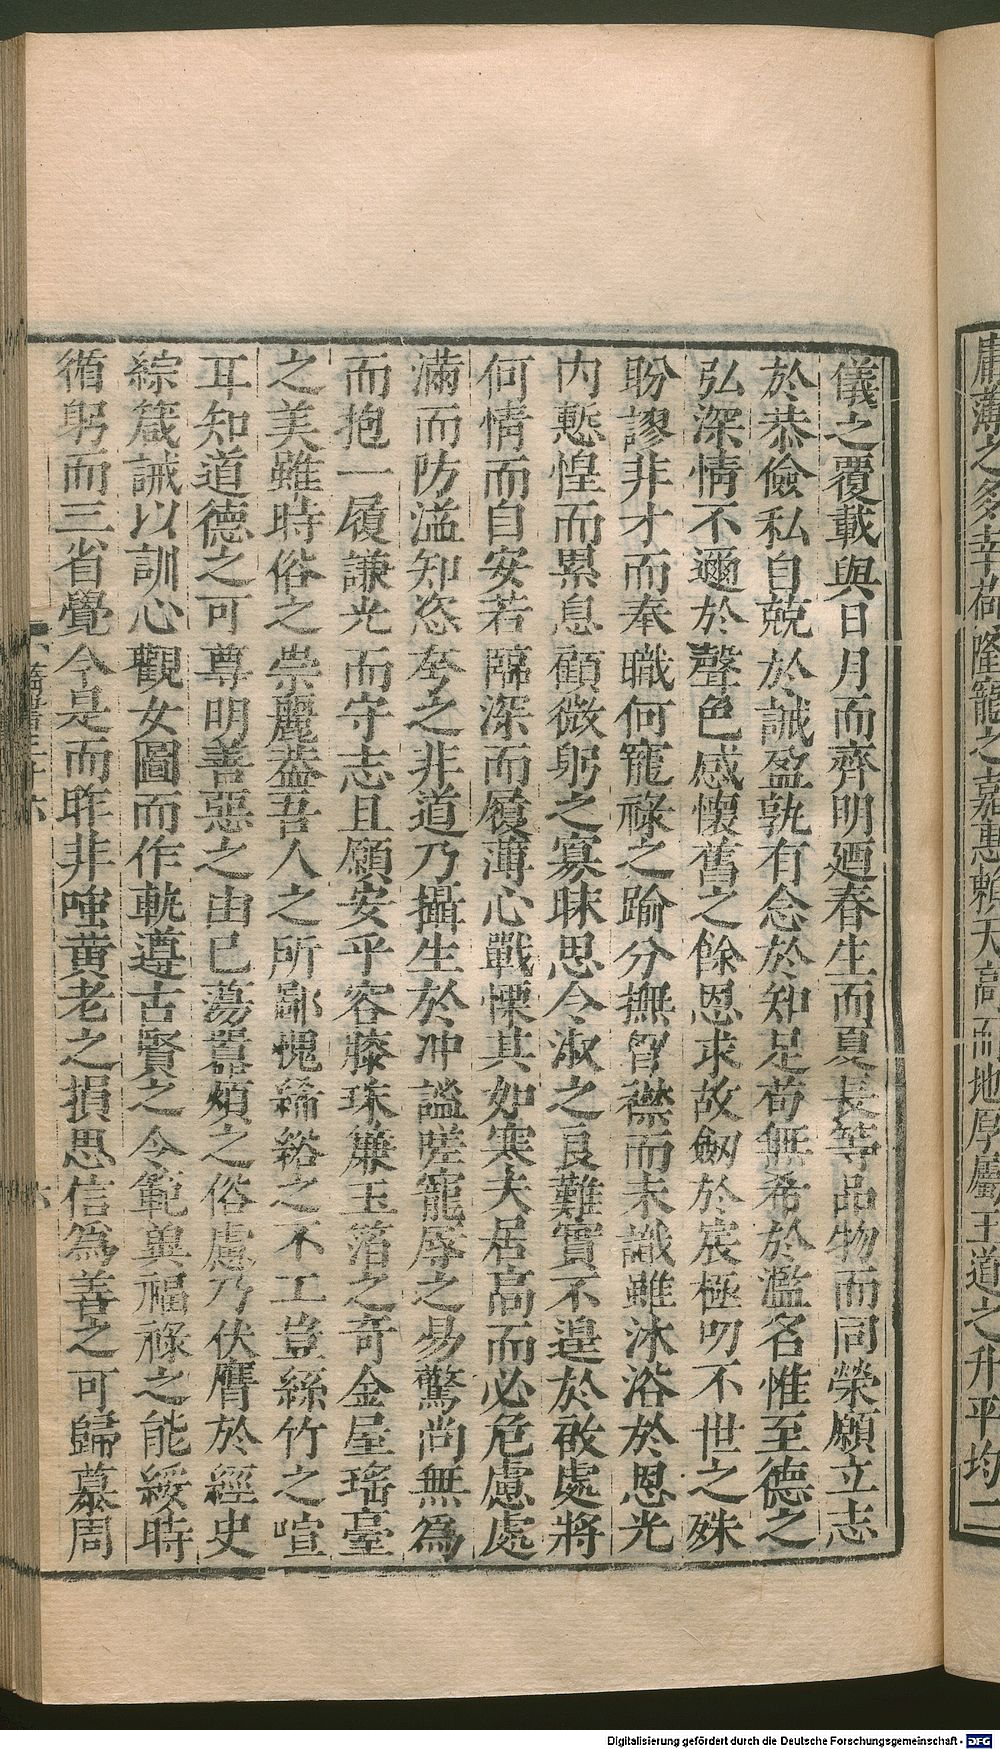 庸薄之多幸荷隆寵之嘉惠賴天高而地厚屬王道之升平均二
儀之覆載與日月而齊明廼春生而夏長等品物而同榮願立志
於恭儉私自兢於誡盈孰有念於知足苟無希於濫名惟至德之
弘深情不邇於聲色感懷舊之餘恩求故劒於宸極叨不世之殊
盼謬非才而奉職何寵祿之踰分撫胷襟而未識雖沐浴於恩光
内慙惶而累息顧微躬之寡昧思令淑之良難實不遑於啟處將
何情而自安若臨深而履薄心戰慄其如寒夫居高而必危慮處
滿而防溢知恣夸之非道乃攝生於冲謐嗟寵辱之易驚尚無爲
而抱一履謙光而守志且願安乎容膝珠簾玉箔之奇金屋瑤臺
之美雖時俗之崇麗蓋吾人之所鄙愧絺綌之不工豈絲竹之喧
耳知道德之可尊明善惡之由已蕩囂煩之俗慮乃伏膺於經史
綜箴誡以訓心觀女圖而作軌遵古賢之令範冀福祿之能綏時
循躬而三省覺今是而昨非嗤黃老之損思信爲善之可歸慕周
六
Digitalisierung gefördert durch die Deutsche Forschungsgemeinschaft - DFG